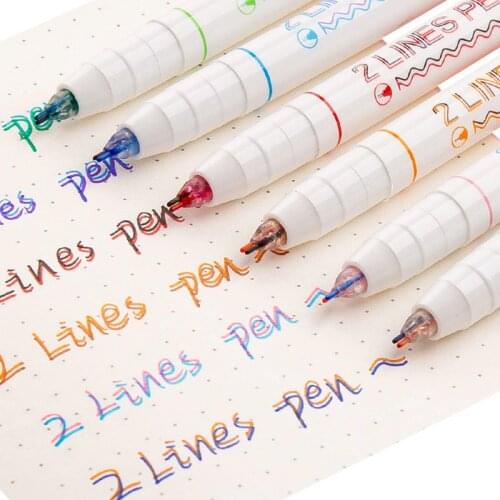 2 LINES PEN
2 LINES
2 LINES PEN
2 LINES
Pen
Lines pen
Lines pen
2 Lines pen
2 Lines pen ~
2 Lines pen ~